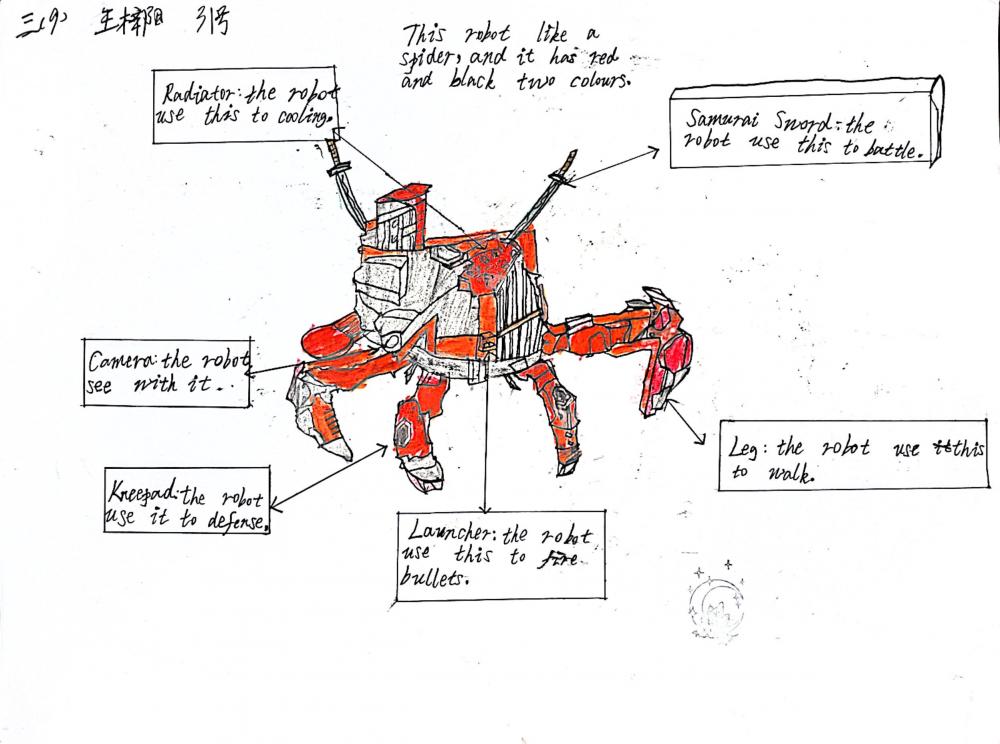 三(9) 王梓阳 31号
This robot like a
spider, and it has red
and black two colours.
Radiator: the robot
use this to cooling.
Samurai Sword: the
robot use this to battle.
Camera: the robot
see with it..
Kneepad: the robot
use it to defense.
Launcher: the robot
use this to fire
bullets.
Leg: the robot use this
to walk.